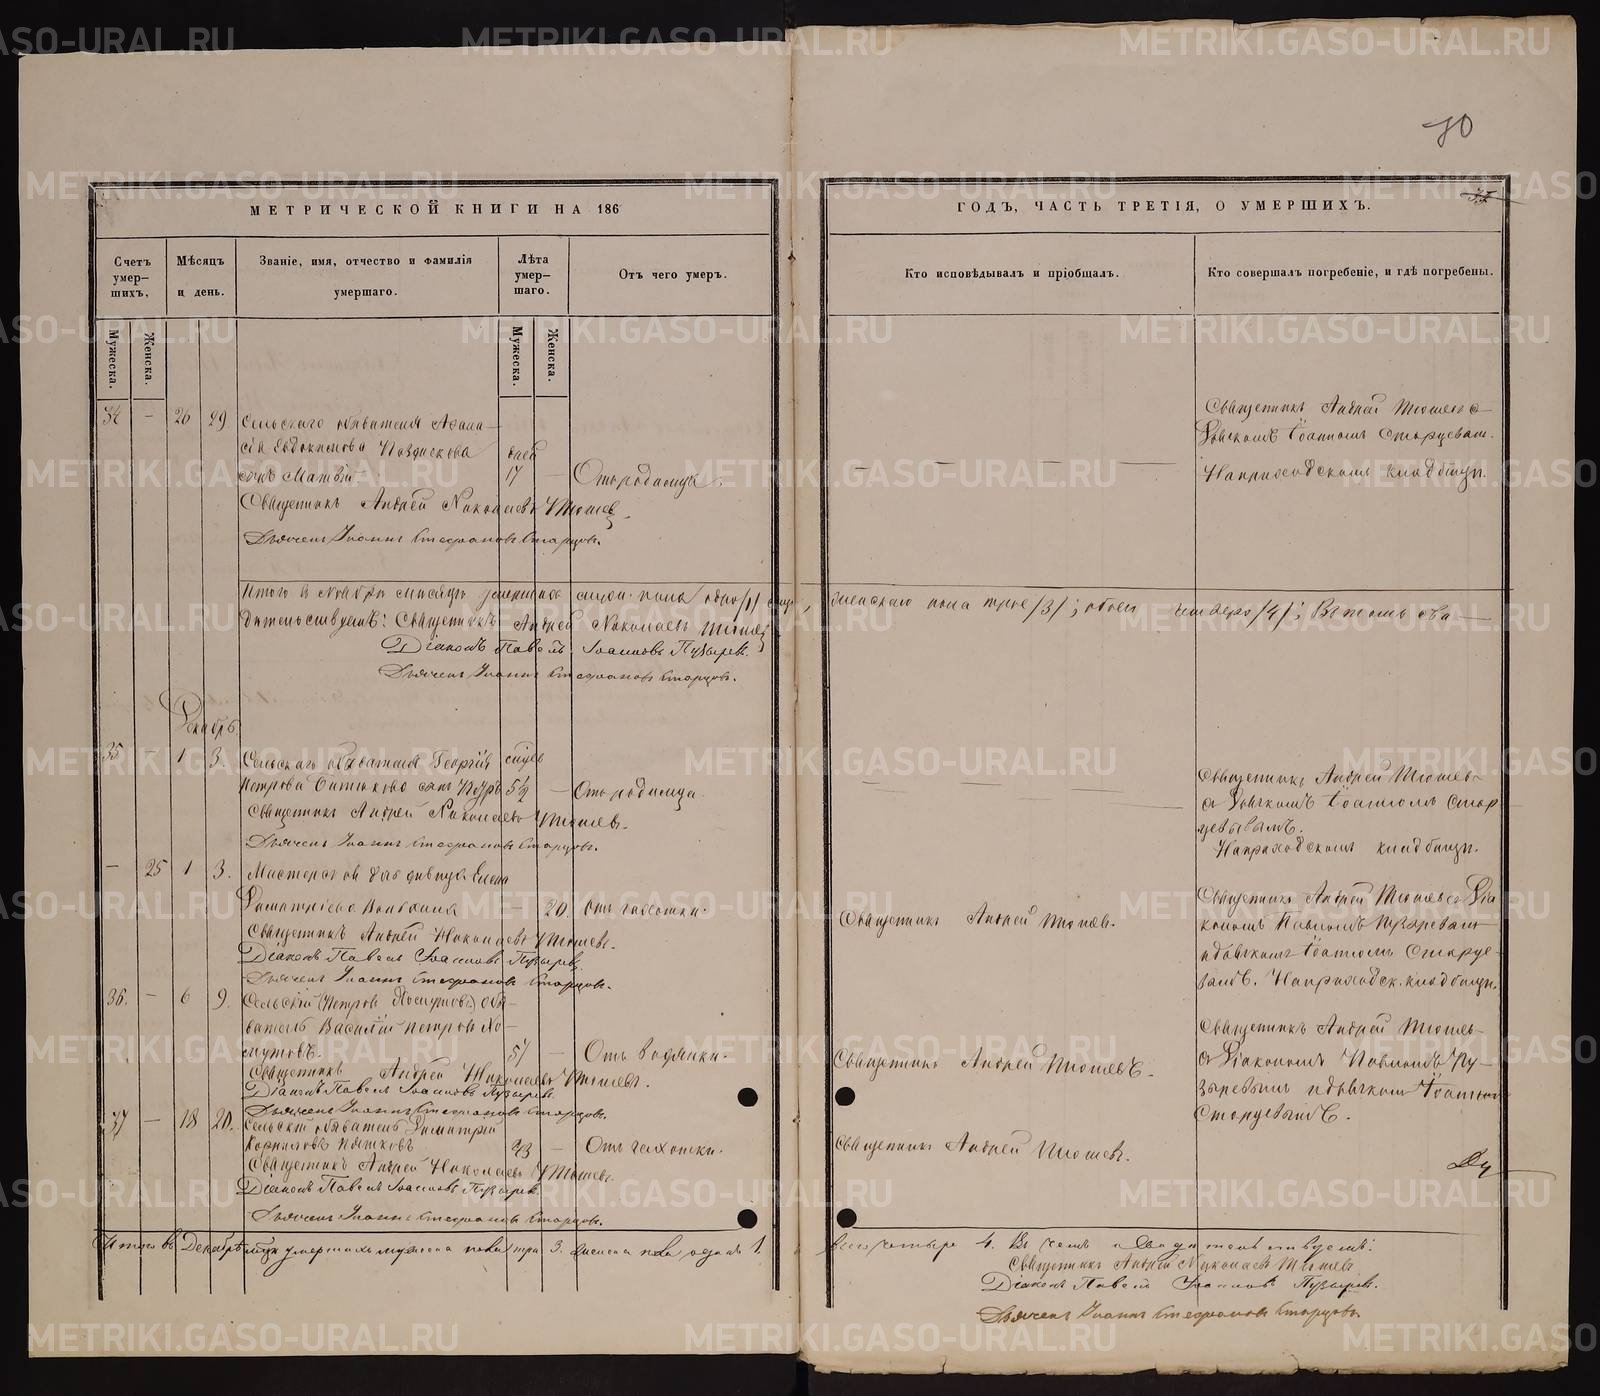 70
МЕТРИЧЕСКОЙ КНИГИ НА 186
ГОДЪ, ЧАСТЬ ТРЕТІЯ, О УМЕРШИХЪ.
Счетъ умер-
шихъ.
Мѣсяцъ
и день.
Званіе, имя, отчество и фамилія
умершаго.
Лѣта
умер-
шаго.
Отъ чего умеръ.
Кто исповѣдывалъ и пріобщалъ.
Кто совершалъ погребеніе, и гдѣ погребены.
Мужеска.
Женска.
Мужеска.
Женска.
34 – 26 29 Сельскаго обывателя Афана-
сія Евдокимова
сынъ Матвій
дней
17 – Отъ родимца.
Священникъ Андрей Николаевъ Тюшев
Дьячекъ Іоаннъ Стефановъ Старцовъ.
Священникъ Андрей Тюшевъ с
Дьячкомъ Іоанномъ Старцевым.
На приходскомъ кладбищѣ.
Итого в Ноябрѣ месяцѣ умершихъ пола одно /1/
женскаго пола трое /3/; обоего четверо /4/; В томъ сви-
дительствуемъ: Священникъ Андрей Николаевъ Тюшев
Діаконъ Павелъ Іоанновъ Пузырев.
Дьячекъ Іоаннъ Стефановъ Старцовъ.
Декабрь
35 – 1 3. Сельскаго обывателя Георгія
Петрова сынъ
5½ – Отъ родимца.
Священникъ Андрей Николаевъ Тюшевъ.
Дьячекъ Іоаннъ Стефановъ Старцовъ.
Священникъ Андрей Тюшевъ
с Дьячкомъ Іоанномъ Стар-
цевымъ.
На приходскомъ кладбищѣ.
– 25 1 3. Мастерской дочь девица Елена
Димитріева
– 20. Отъ чахотки.
Священникъ Андрей Николаевъ Тюшевъ.
Діаконъ Павелъ Іоанновъ Пузырев.
Дьячекъ Іоаннъ Стефановъ Старцовъ.
Священникъ Андрей Тюшевъ.
Священникъ Андрей Тюшевъ с Діа-
кономъ Павломъ Пузыревым
и дьячкомъ Іоанномъ Старце-
вымъ. На приходск. кладбищѣ.
36. – 6 9. Сельскій обы-
ватель Василій Петровъ
51 – Отъ водянки.
Священникъ Андрей Николаевъ Тюшевъ.
Діаконъ Павелъ Іоанновъ Пузырев.
Дьячекъ Іоаннъ Стефановъ Старцовъ.
Священникъ Андрей Тюшевъ.
Священникъ Андрей Тюшевъ
с Діакономъ Павломъ Пу-
зыревымъ и дьячкомъ Іоанном
Старцевымъ.
37 – 18 20. Сельскій обыватель Димитрій
Корниловъ
43 – Отъ чахотки.
Священникъ Андрей Николаевъ Тюшевъ.
Діаконъ Павелъ Іоанновъ Пузырев.
Дьячекъ Іоаннъ Стефановъ Старцовъ.
Священникъ Андрей Тюшевъ.
Итого въ Декабрѣ умершихъ мужеска пола три 3. женска пола одна 1.
всего четыре 4. В чемъ и свидительствуемъ:
Священникъ Андрей Николаевъ Тюшевъ
Діаконъ Павелъ Іоанновъ Пузырев.
Дьячекъ Іоаннъ Стефановъ Старцовъ
METRIKI.GASO-URAL.RU